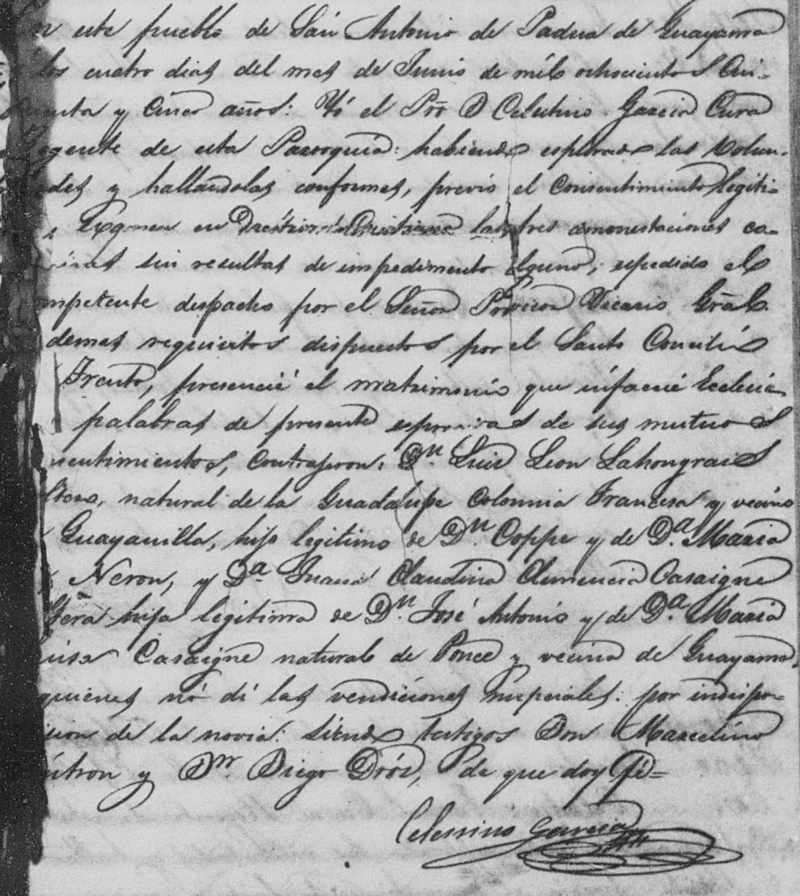 este pueblo de San Antonio de Padua de Guayama
los cuatro dias del mes de Junio de mil ochocientos Cin-
cuenta y Cinco años: Yó el Pro D Celestino Garcia Cura
Regente de esta Parroquia: habiendo esplorado las volun-
des y hallandolas conformes, previo el consentimiento legiti-
las tres amonestaciones ca-
sin resultas de impedimento alguno; espedido el
mpetente despacho por el Señor Provisor Vicario Gral
demas requicitos dispuestos por el Santo Concilio
Trento, presencié el matrimonio que infacié Eclecie
palabras de presente de sus mutuos
sentimientos, contrageron: Dn Luis Leon Lahongrais
ltero, natural de la Guadalupe Colonnia Francesa y vecino
Guayanilla, hijo legitimo de Dn Coppe y de Da. Maria
Neron, y Da Juana Claudina Clemencia Casaigne
ltera hija legitima de Dn José Antonio y de Da Maria
uisa Casaigne natural de Ponce y vecina de Guayama
quienes nó di las vendiciones nupciales: por indispo-
cion de la novia: siendo testigos Don Marcelino
ntron y Dn Diego de que doy fé=
Celestino Garcia